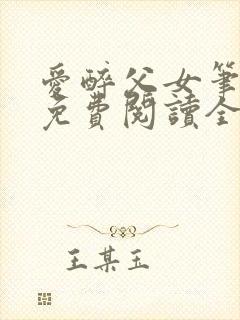 愛醉父女筆
免費閱讀全
王某玉